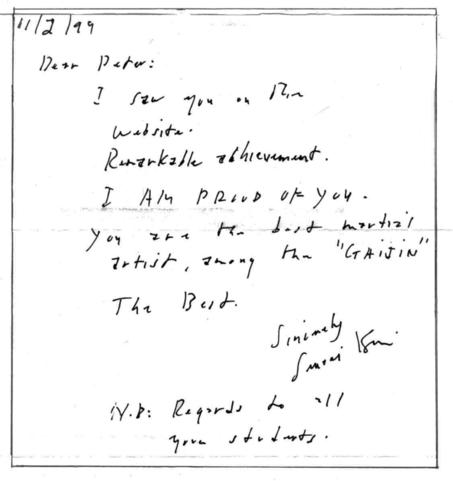 11/2/99
Dear Peter:
I saw you on the
website.
Remarkable achievement.
I AM PROUD OF YOU.
You are the best martial
artist, among the "GAIJIN"
The Best.
Sincerely
Sensei
N.B: Regards to all
your students.